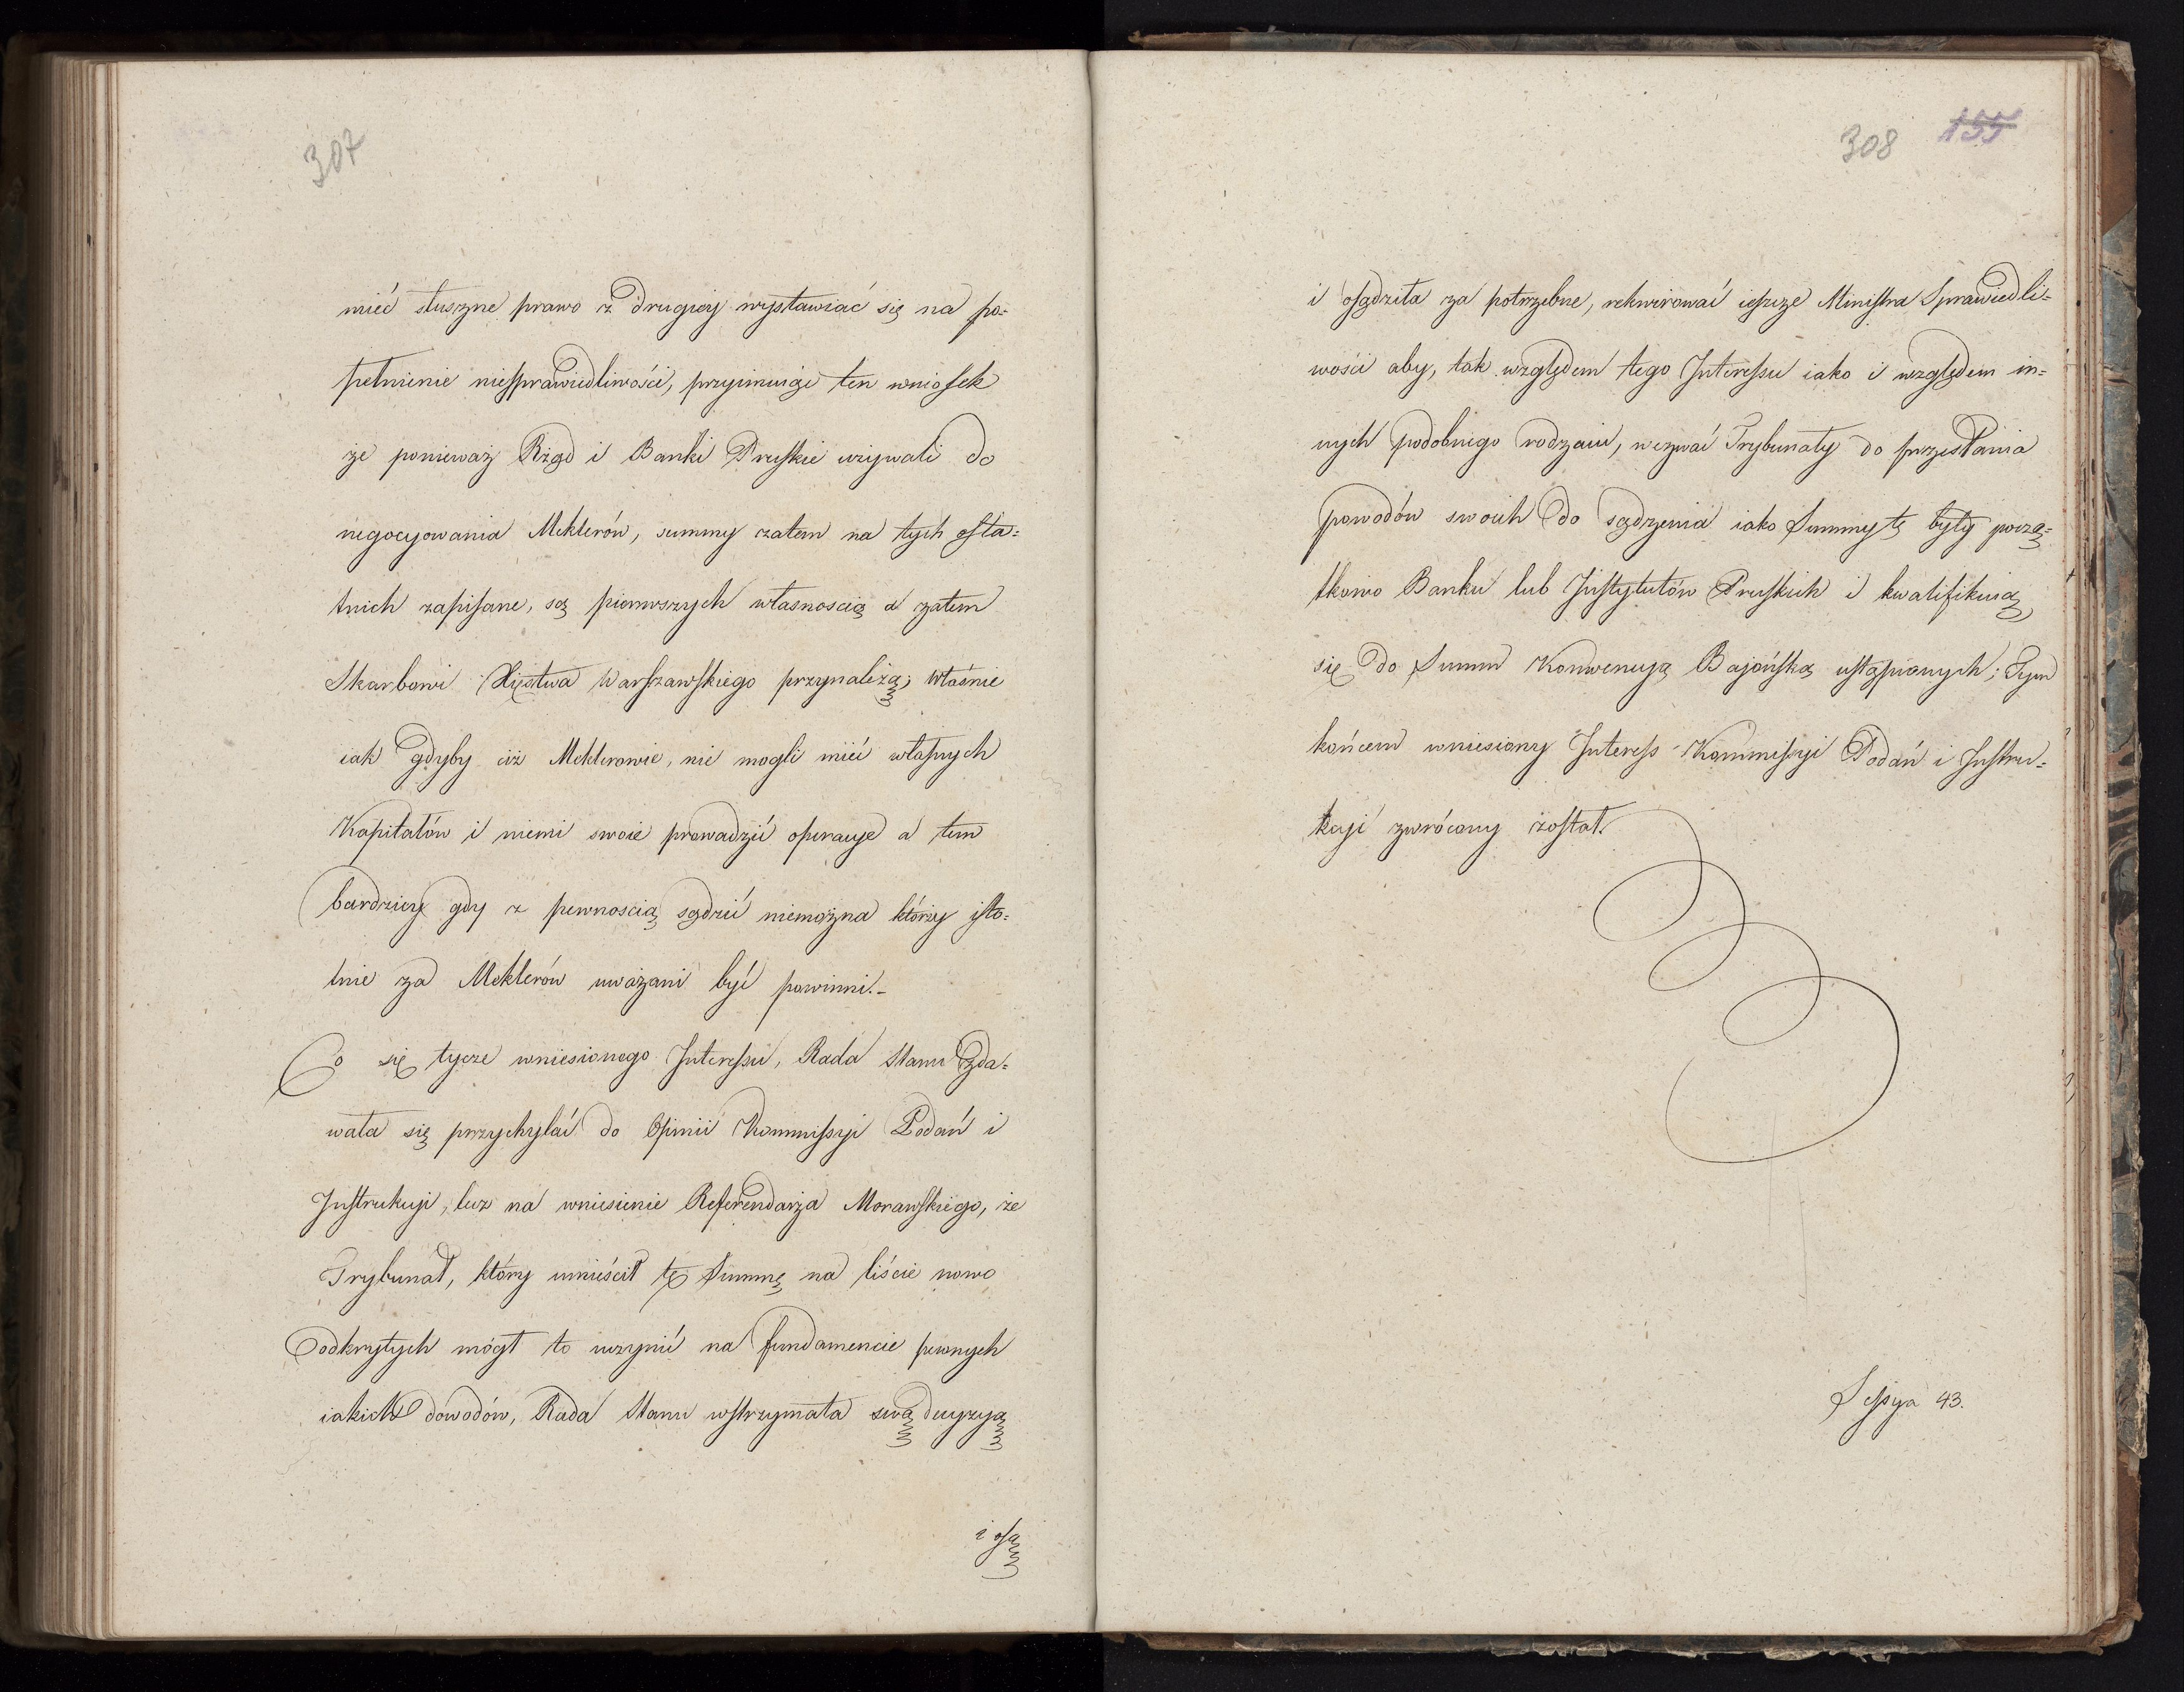 307
mieć słuszne prawo z drugiey wystawiać się na po=
pełnienie niesprawiedliwości, przyimuiąc ten wniosek
że ponieważ Rząd i Banki Pruskie używali do
negocyowania Meklerów, summy zatem na tych osta=
tnich zapisane, są pierwszych własnoscią a zatem
Skarbowi Xięstwa Warszawskiego przynależą; właśnie
iak gdyby ciż Meklerowie, nie mogli mieć własnych
Kapitałów i niemi swoie prowadzić operacye a tem
bardziey gdy z pewnoscią sądzić niemożna którzy isto=
tnie za Meklerów uważani być powinni.-
Co się tycze wniesionego Interessu, Rada Stanu zda=
wała się przychylać do Opinii Kommissyi Podań i
Instrukcyi, lecz na wniesienie Referendarza Morawskiego, że
Trybunał, który umieścił tę Summę na liście nowo
odkrytych mógł to uczynić na fundamencie pewnych
iakich dowodów, Rada Stanu wstrzymała swą decyzyą
i osą
308 155
i osądziła za potrzebne, rekwirować ieszcze Ministra Sprawiedli=
wości aby, tak względem tego Interessu iako i względem in=
nych podobnego rodzaiu, wezwać Trybunały do przesłania
powodów swoich do sądzenia iako Summy te były począ=
tkowo Banku lub Instytutów Pruskich i kwalifikuią
się do Summ Konwencyą Bajońską ustąpionych; Tym
końcem wniesiony Interess Kommissyi Podań i Instru=
kcyi zwrócony został.
Sessya 43.